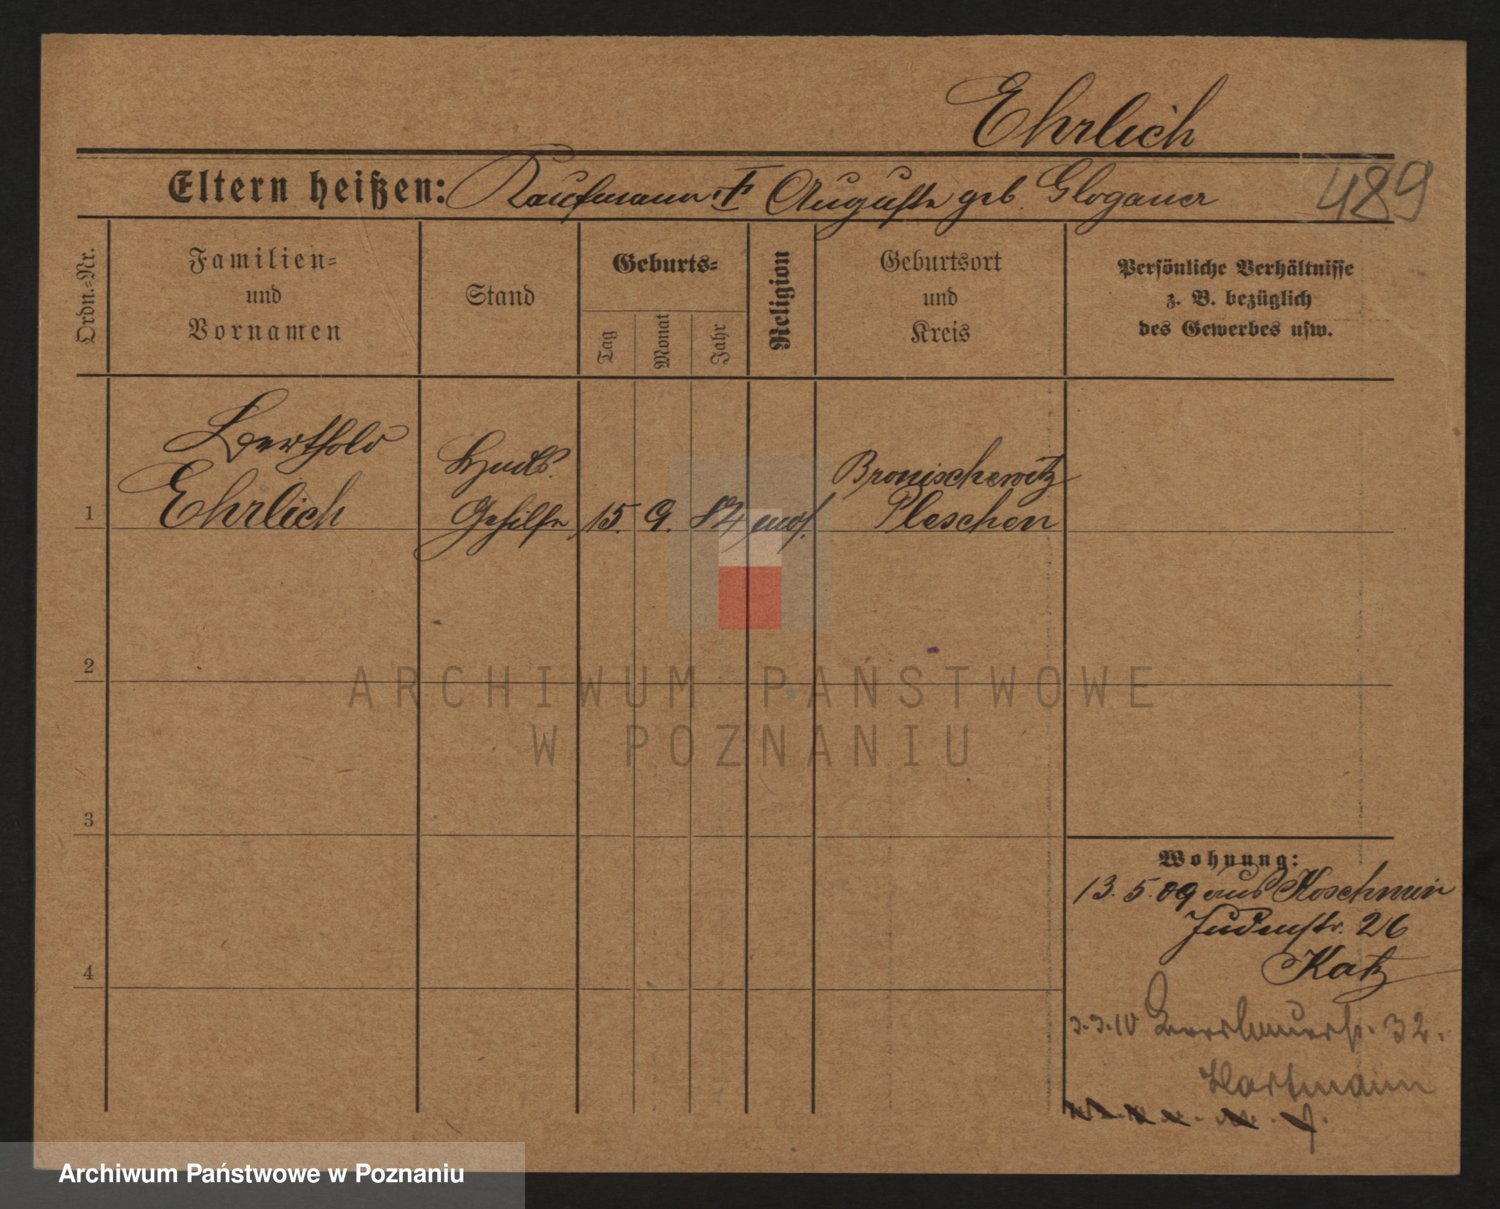 Ehrlich
Eltern heißen: Kaufmann F Auguste geb. Glogauer
489
Ordn.-Nr.
Familien-
und
Vornamen
Stand
Geburts-
Tag
Monat
Jahr
Religion
Geburtsort
und
Kreis
Persönliche Verhältnisse
z. B. bezüglich
des Gewerbes usw.
1
Berthold
Ehrlich
Hndls.
Gehilfe
15. 9. 84 mos.
Bronischewitz
Pleschen
2
ARCHIWUM PAŃSTWOWE
W POZNANIU
3
4
Wohnung:
13.5.09 aus Koschmin
Judenstr. 26
Katz
3.3.10 32.
Hartmann
Archiwum Państwowe w Poznaniu